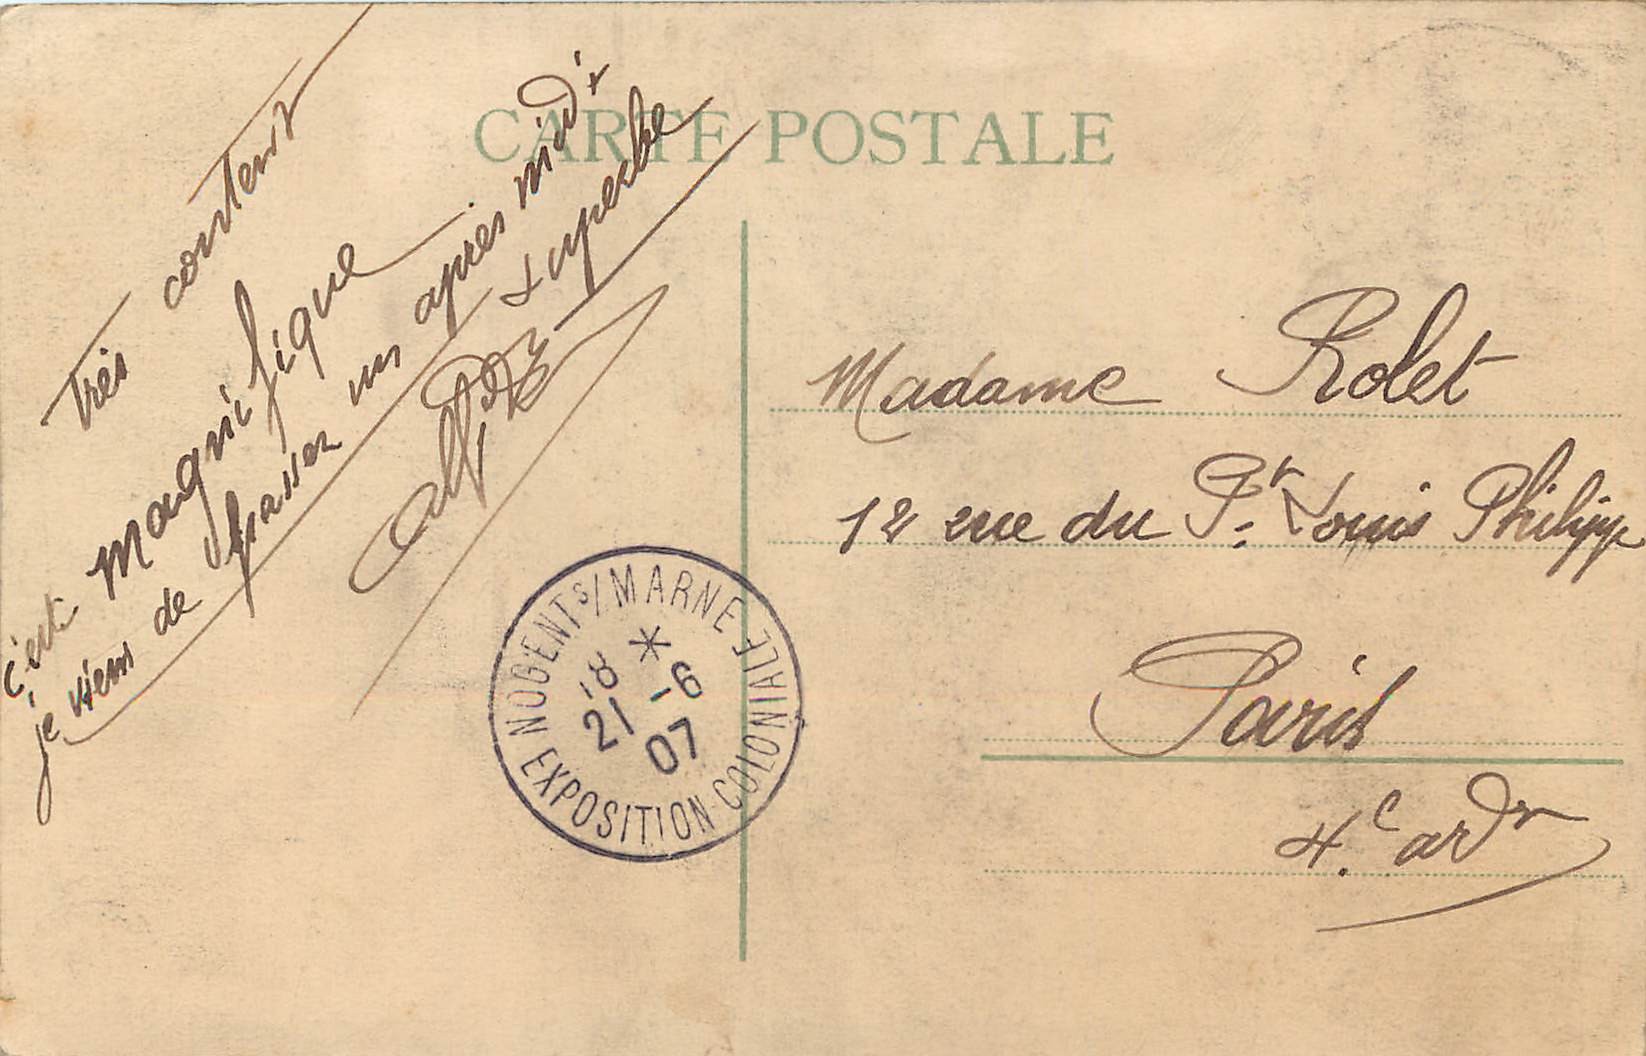 CARTE POSTALE
très content
c'est magnifique
je viens de passer un après midi
superbe
Madame Rolet
12 rue du Pt Louis Philippe
Paris
4.e ardt
NOGENT S/MARNE
EXPOSITION COLONIALE
18 *
21 -6
07